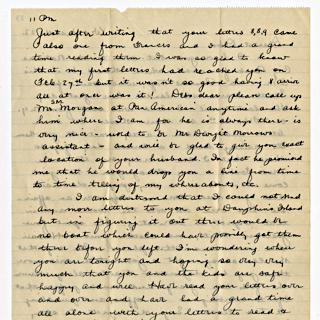 11 Pm
Just after writing that your letters 7, 8, 9 came
also one from Frances and I had a grand
time reading them. I was so glad to know
that my first letters had reached you on
Feb. 27th but it wasn't so good having 4 arrive
all at once was it! Dess dear please call up
Mr. Sam Morgan at Pan American anytime and ask
him where I am for he is always there - is
very nice - used to be Mr Dwight Morrow's
assistant - and will be glad to give you exact
location of your husband. In fact he promised
me that he would drop you a line from time
to time telling of my whereabouts, etc.
I am distressed that I could not send
any more letters to you at Dauphin's Island
but in figuring it out there would be
no boat which could have possibly got them
there before you left. I'm wondering when
you are tonight and hoping so very very
much that you and the kids are safe
happy and well. Have read your letters over
and over and have had a grand time
all alone with your letters to read &